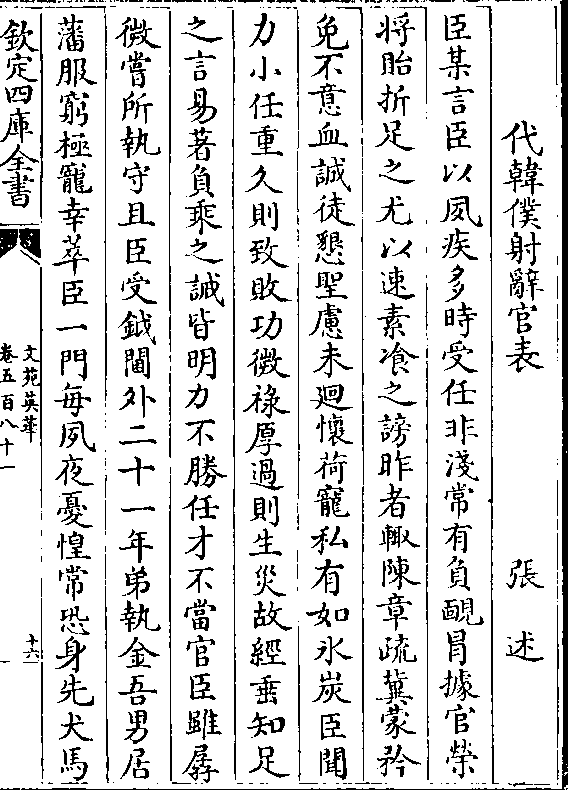 代韓僕射辭官表　張述
臣某言臣以夙疾多時受任非淺常有負靦冐據官榮
將貽折足之尤以速素飡之謗昨者輙陳章疏冀蒙矜
免不意血誠徒懇聖慮未迴懷荷寵私有如氷炭臣聞
力小任重久則致敗功微祿厚過則生災故經垂知足
之言易著負乘之誡皆明力不勝任才不當官臣雖孱
微嘗所執守且臣受鉞閫外二十一年弟執金吾男居
藩服窮極寵幸萃臣一門每夙夜憂惶常恐身先犬馬
欽定四庫全書
文苑英華
卷五百八十一
十六